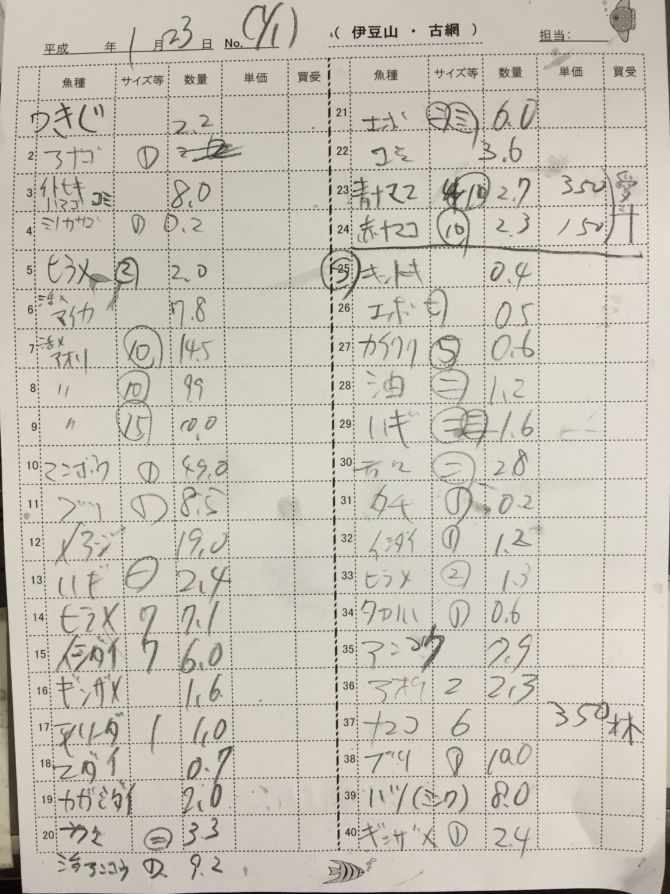 平成 年 1 月 23 日 No. ( 伊豆山 ・ 古網 ) 担当:
魚種 サイズ等 数量 単価 買受
つきじ 2.2
2 アナゴ ①
3 イトヒキ ゴミ 8.0
4 ミノカサゴ ① 0.2
5 ヒラメ ② 2.0
6 活〆 マイカ 7.8
7 活〆 アオリ ⑩ 14.5
8 〃 ⑩ 9.9
9 〃 ⑮
10 マンボウ ① 49.0
11 ブリ ① 8.5
12 メアジ 19.0
13 ハギ ㊁ 2.4
14 ヒラメ 7 7.1
15 イシダイ 7 6.0
16 ギンザメ 1.6
17 1 1.0
18 マダイ 0.7
19 カガミダイ 2.0
20 ㊁ 3.3
活アンコウ 9.2
魚種 サイズ等 数量 単価 買受
21 エボ ㊁㊂ 6.0
22 ゴミ 3.6
23 青ナマコ ⑩ 2.7 350
24 赤ナマコ ⑩ 2.3 150
25 キントキ 0.4
26 エボ 0.5
27 カイワリ ⑤ 0.6
28 油 ㊁ 1.2
29 ハギ 1.6
30 ㊁ 2.8
31 タチ ① 0.2
32 イシダイ ① 1.2
33 ヒラメ ② 1.3
34 タカハ ① 0.6
35 アンコウ 7.9
36 アオリ 2 2.3
37 ナマコ 6 350 林
38 ブリ ① 10.0
39 8.0
40 ギンザメ ① 2.4